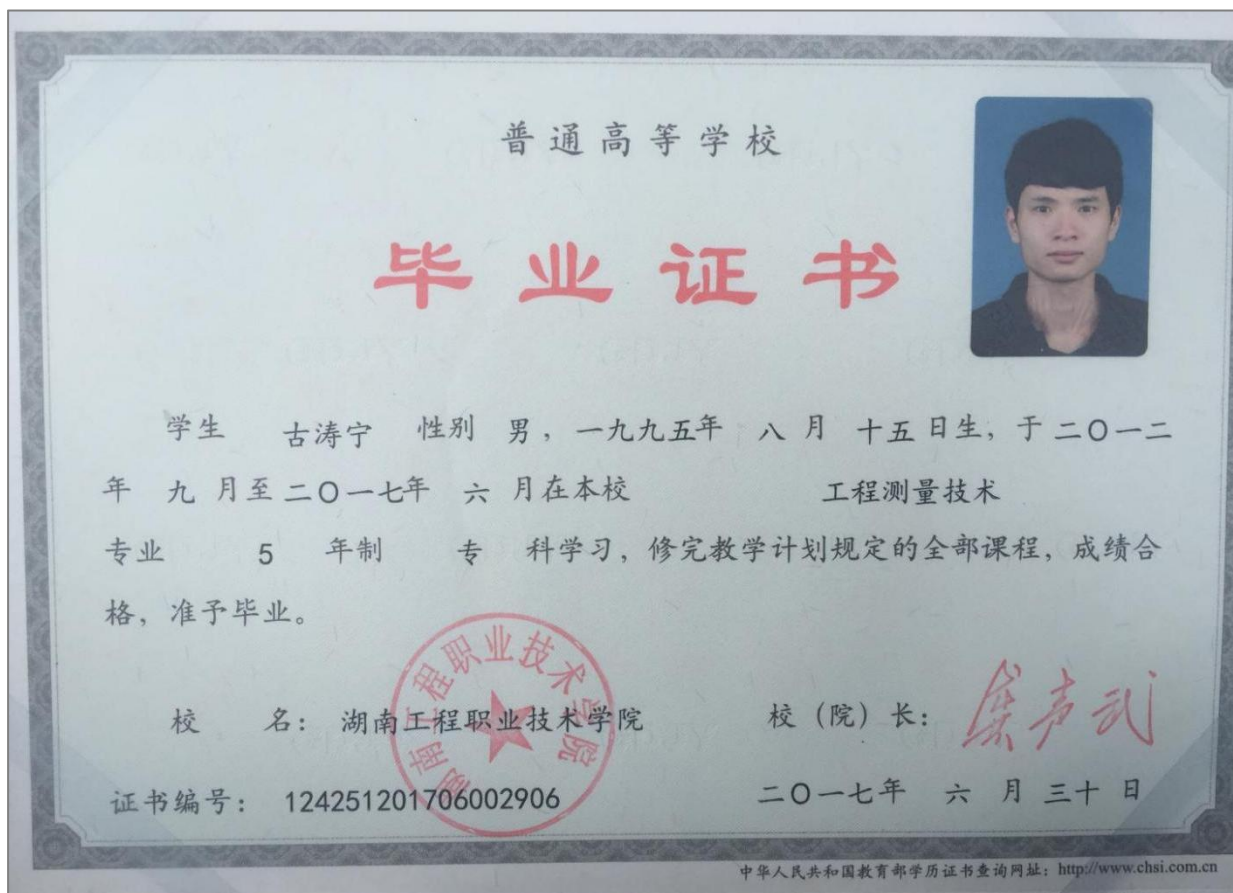 普通高等学校
毕业证书
学生 古涛宁 性别 男，一九九五年 八 月 十五 日生，于 二〇一二
年 九 月至 二〇一七年 六 月在本校 工程测量技术
专业 5 年制 专 科学习，修完教学计划规定的全部课程，成绩合
格，准予毕业。
湖南工程职业技术学院
校 名：湖南工程职业技术学院 校（院）长：
证书编号：124251201706002906 二〇一七年 六 月 三十 日
中华人民共和国教育部学历证书查询网址：http://www.chsi.com.cn